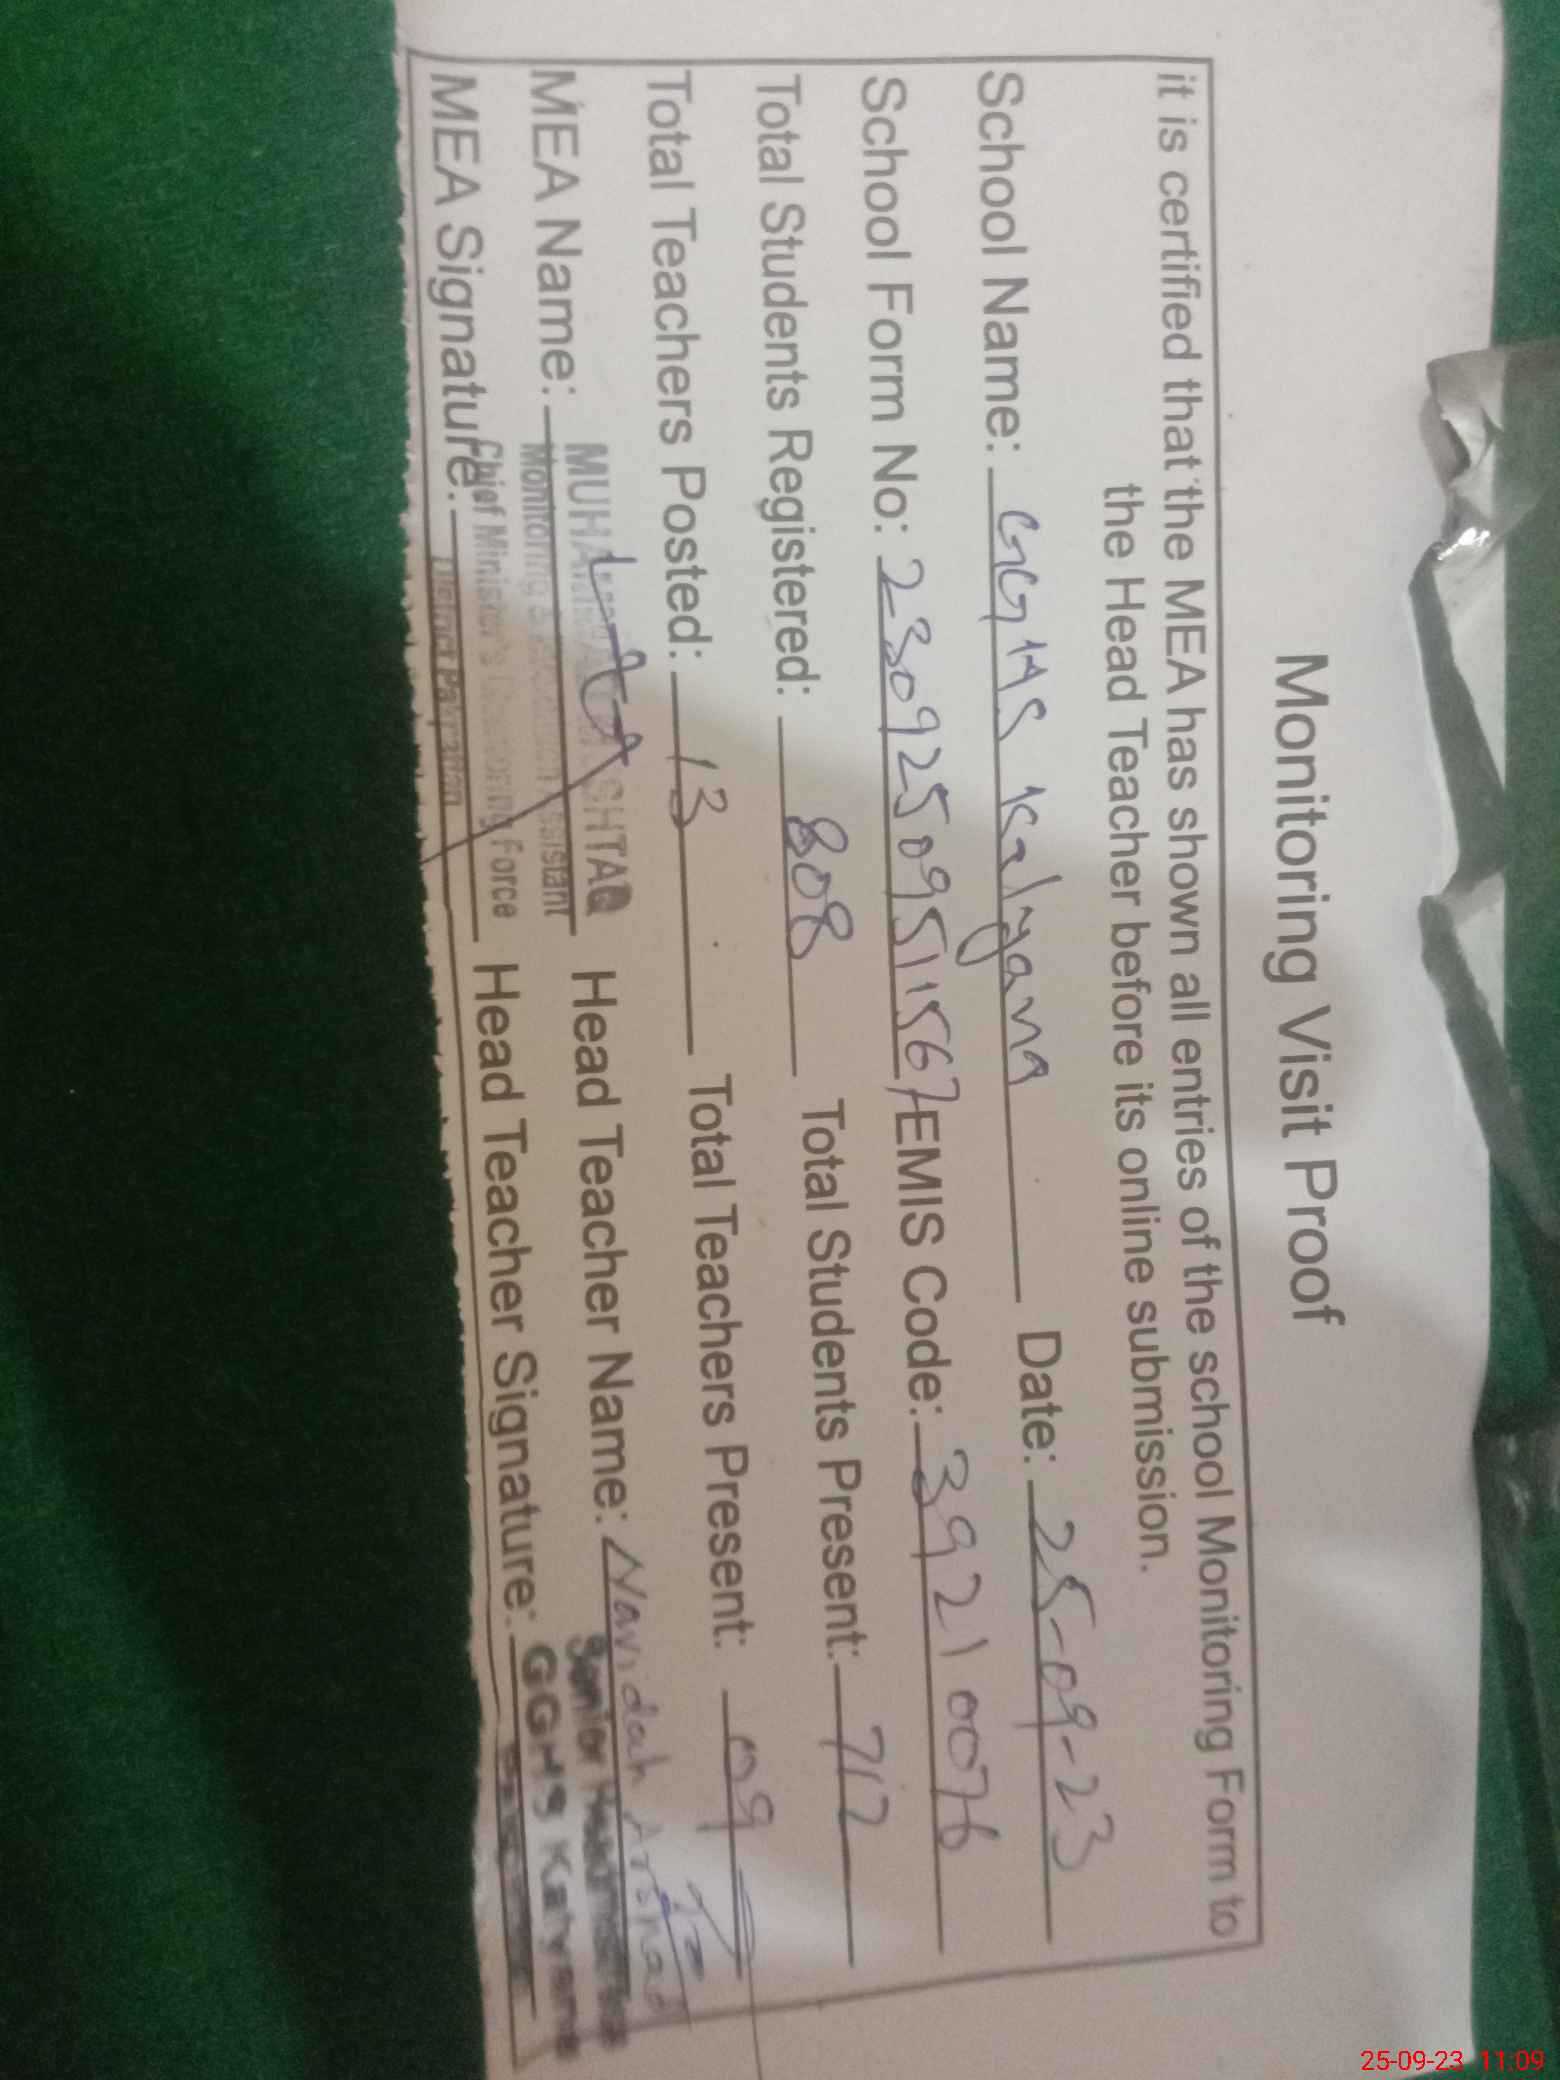 Monitoring Visit Proof
it is certified that the MEA has shown all entries of the school Monitoring Form to
the Head Teacher before its online submission.
School Name: GGHS Kalyana Date: 25-09-23
School Form No: 23092509511567 EMIS Code: 39210076
Total Students Registered: 808 Total Students Present: 712
Total Teachers Posted: 13 Total Teachers Present: 09
MEA Name: MUHAMMAD MUSHTAQ Head Teacher Name: Navidah Arshad
Monitoring & Evaluation Assistant Senior Headmistress
MEA Signature: Chief Minister's Monitoring Force Head Teacher Signature: GGHS Kalyana
District Pakpattan
25-09-23 11:09